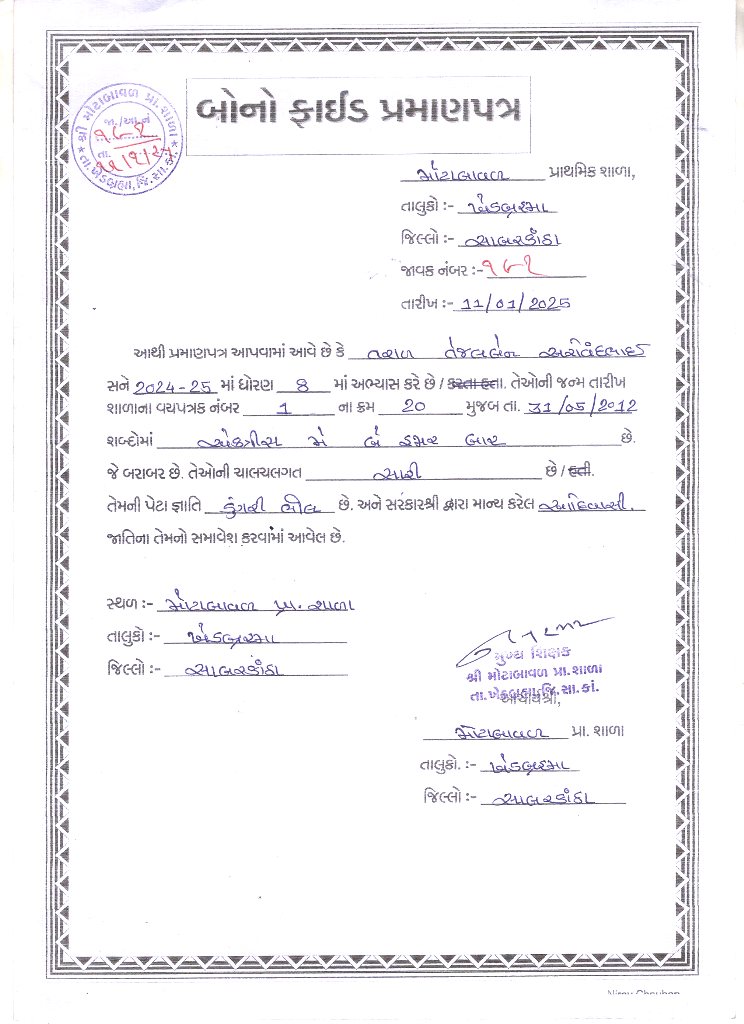 બોનો ફાઈડ પ્રમાણપત્ર
શ્રી મોટાબાવળ પ્રા. શાળા
જા./આ.નં
૧૮૧
તા.
તા.ખેડબ્રહ્મા, જિ.સા.કાં.
મોટાબાવળ પ્રાથમિક શાળા,
તાલુકો :- ખેડબ્રહ્મા
જિલ્લો :- સાબરકાંઠા
જાવક નંબર :- ૧૮૧
તારીખ :- 11/01/2025
આથી પ્રમાણપત્ર આપવામાં આવે છે કે તરાળ તેજલબેન અરવિંદભાઈ
સને 2024-25 માં ધોરણ 8 માં અભ્યાસ કરે છે / કરતા હતા. તેઓની જન્મ તારીખ
શાળાના વયપત્રક નંબર 1 ના ક્રમ 20 મુજબ તા. 31/05/2012
શબ્દોમાં એકત્રીસ મે બે હજાર બાર છે.
જે બરાબર છે. તેઓની ચાલચલગત સારી છે / હતી.
તેમની પેટા જ્ઞાતિ ડુંગરી ભીલ છે. અને સરકારશ્રી દ્વારા માન્ય કરેલ આદિવાસી.
જાતિના તેમનો સમાવેશ કરવામાં આવેલ છે.
સ્થળ :- મોટાબાવળ પ્રા. શાળા
તાલુકો :- ખેડબ્રહ્મા
જિલ્લો :- સાબરકાંઠા
મુખ્ય શિક્ષક
શ્રી મોટાબાવળ પ્રા.શાળા
તા.ખેડબ્રહ્મા,જિ.સા.કાં.
આચાર્યશ્રી,
મોટાબાવળ પ્રા. શાળા
તાલુકો. :- ખેડબ્રહ્મા
જિલ્લો :- સાબરકાંઠા